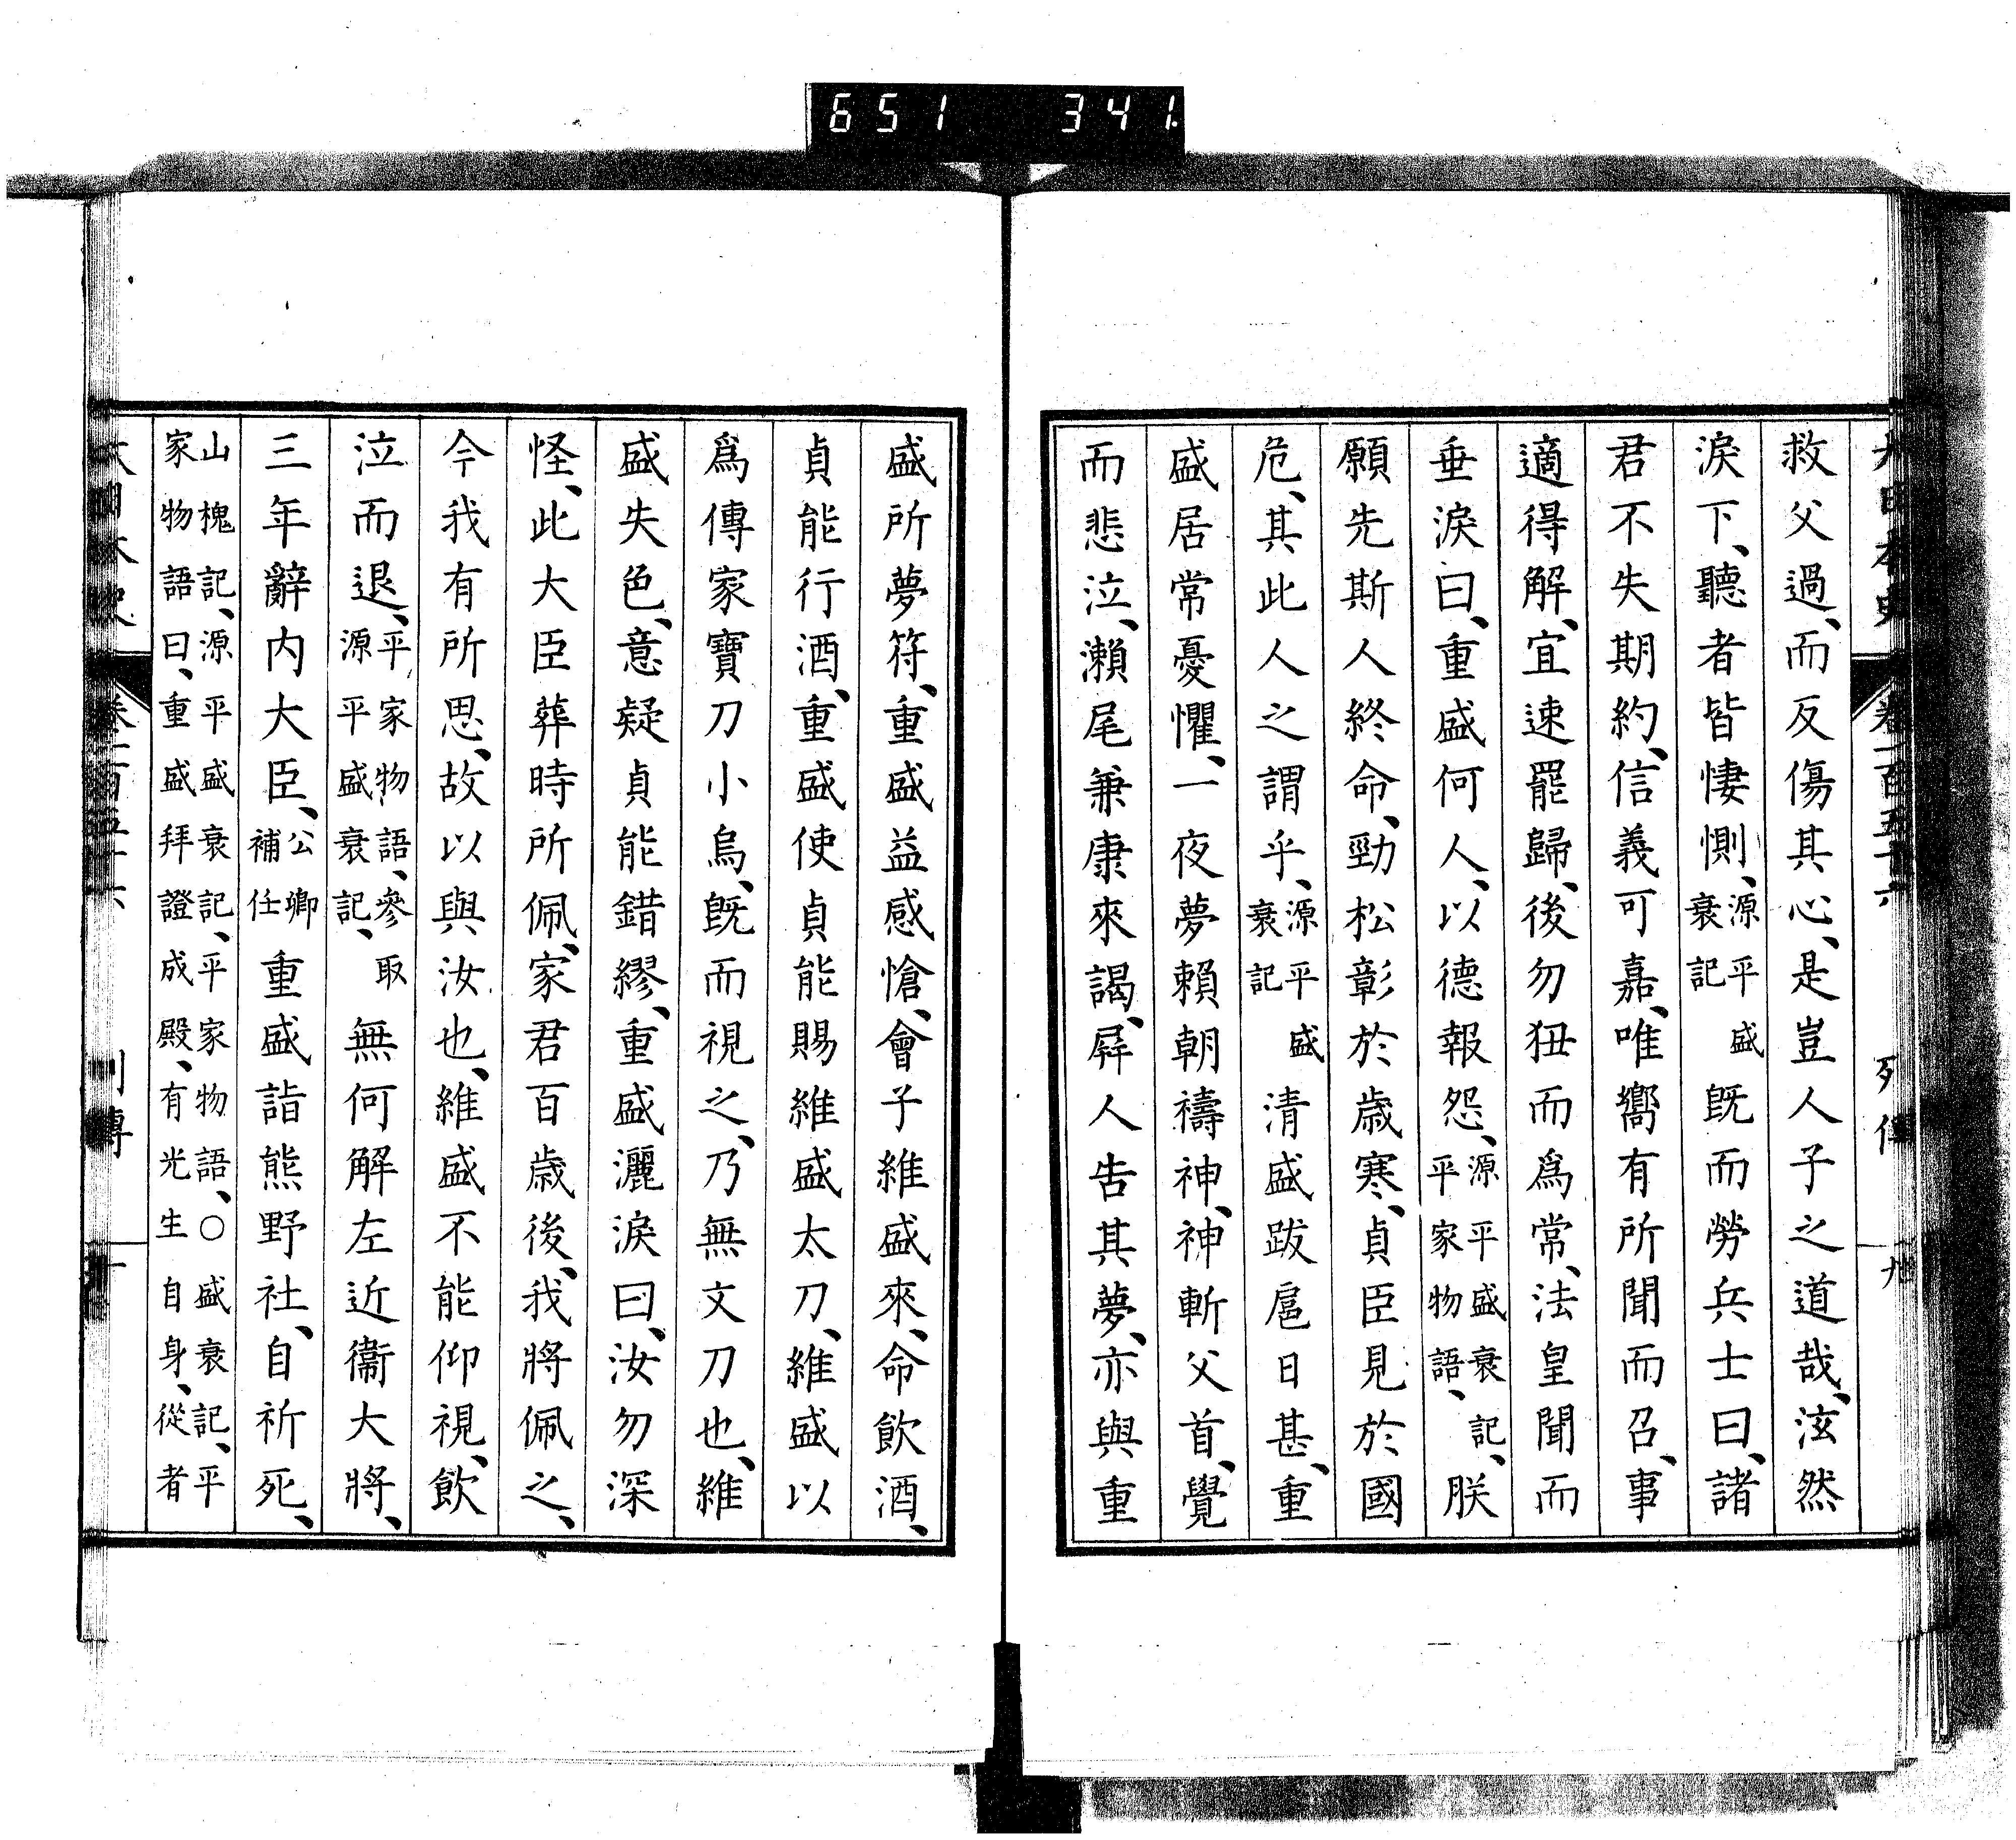 651 341.
大日本史 卷一百五十六 列傳 九
救父過、而反傷其心、是豈人子之道哉、泫然
淚下、聽者皆悽惻、源平盛衰記既而勞兵士曰、諸
君不失期約、信義可嘉、唯嚮有所聞而召、事
適得解、宜速罷歸、後勿狃而爲常、法皇聞而
垂淚曰、重盛何人、以德報怨、源平盛衰記、平家物語、朕
願先斯人終命、勁松彰於歲寒、貞臣見於國
危、其此人之謂乎、源平盛衰記清盛跋扈日甚、重
盛居常憂懼、一夜夢賴朝禱神、神斬父首、覺
而悲泣、瀨尾兼康來謁、屛人告其夢、亦與重
盛所夢符、重盛益感愴、會子維盛來、命飮酒、
貞能行酒、重盛使貞能賜維盛太刀、維盛以
爲傳家寶刀小烏、既而視之、乃無文刀也、維
盛失色、意疑貞能錯繆、重盛灑淚曰、汝勿深
怪、此大臣葬時所佩、家君百歲後、我將佩之、
今我有所思、故以與汝也、維盛不能仰視、飮
泣而退、平家物語、參取源平盛衰記、無何解左近衞大將、
三年辭內大臣、公卿補任重盛詣熊野社、自祈死、
山槐記、源平盛衰記、平家物語、○盛衰記、平
家物語曰、重盛拜證成殿、有光生自身、從者
大日本史 卷一百五十六 列傳 十